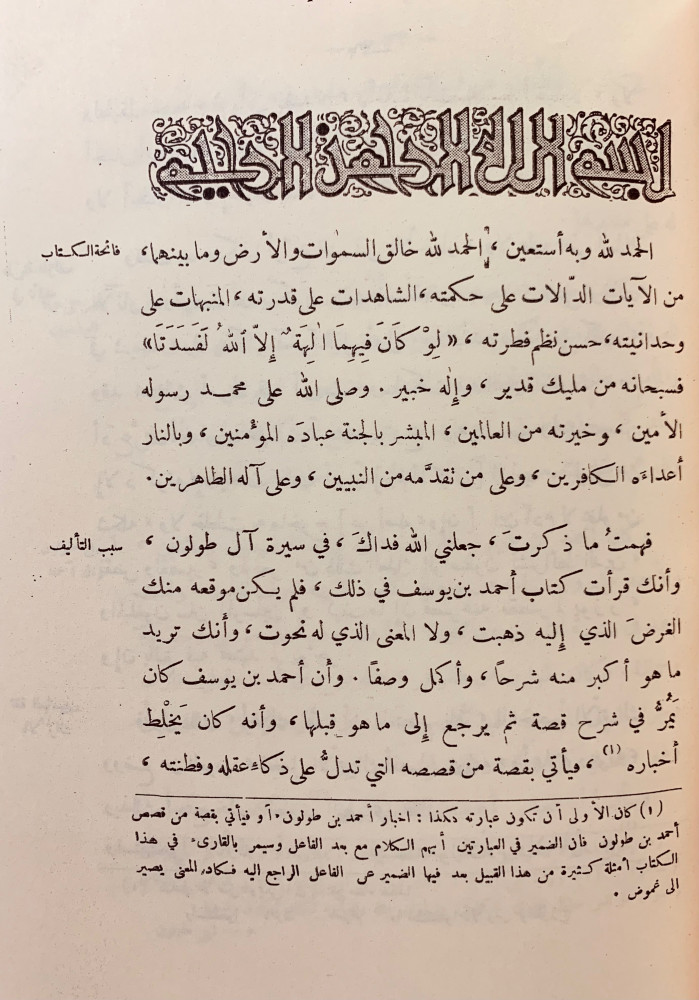 بسم الله الرحمن الرحيم
الحمد لله وبه أستعين ، الحمد لله خالق السمٰوات والأرض وما بينهما،
فاتحة الكتاب
من الآيات الدّالات على حكمته، الشاهدات على قدرته ، المنبهات على
وحدانيته، حسن نظم فطرته ، « لَوْ كَانَ فِيهِمَا اٰلِهَةٌ إِلاَّ ٱللهُ لَفَسَدَتَا »
فسبحانه من مليك قدير ، وإِلٰه خبير . وصلى الله على محمد رسوله
الأمين ، وخيرته من العالمين ، المبشر بالجنة عبادَه المؤمنين ، وبالنار
أعداءَه الكافرين ، وعلى من تقدَّمه من النبيين ، وعلى آله الطاهرين.
فهمتُ ما ذكرتَ ، جعلني الله فداكَ ، في سيرة آل طولون ،
سبب التأليف
وأنك قرأت كتاب أحمد بن يوسف في ذلك ، فلم يكن موقعه منك
الغرضَ الذي إِليه ذهبت ، ولا المعنى الذي له نحوت ، وأنك تريد
ما هو أكبر منه شرحاً ، وأكمل وصفاً . وأن أحمد بن يوسف كان
يَمُرُّ في شرح قصة ثم يرجع إِلى ما هو قبلها ، وأنه كان يَخْلِط
أخباره (١) ، فيأتي بقصة من قصصه التي تدلُّ على ذكاء عقله وفطنته ،
(١) كان الأولى أن تكون عبارته هكذا : اخبار أحمد بن طولون ، أو فيأتي بقصة من قصص
أحمد بن طولون فان الضمير في العبارتين أبهم الكلام مع بعد الفاعل وسيمر بالقارىء في هذا
الكتاب أمثلة كثيرة من هذا القبيل بعد فيها الضمير عن الفاعل الراجع اليه فكاد المعنى يصير
الى غموض .